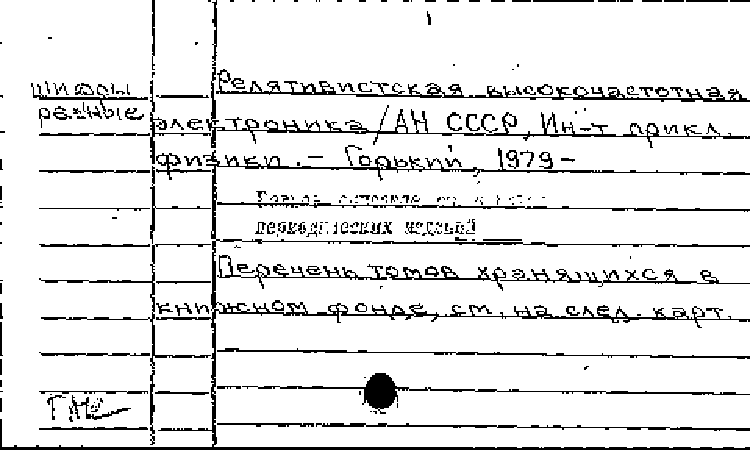 Шифры
разные
Релятивистская высокочастотная
электроника / АН СССР, Ин-т прикл.
физики. - Горький, 1979-
периодических изданий
Перечень томов хранящихся в
книжном фонде, см. на след. карт.